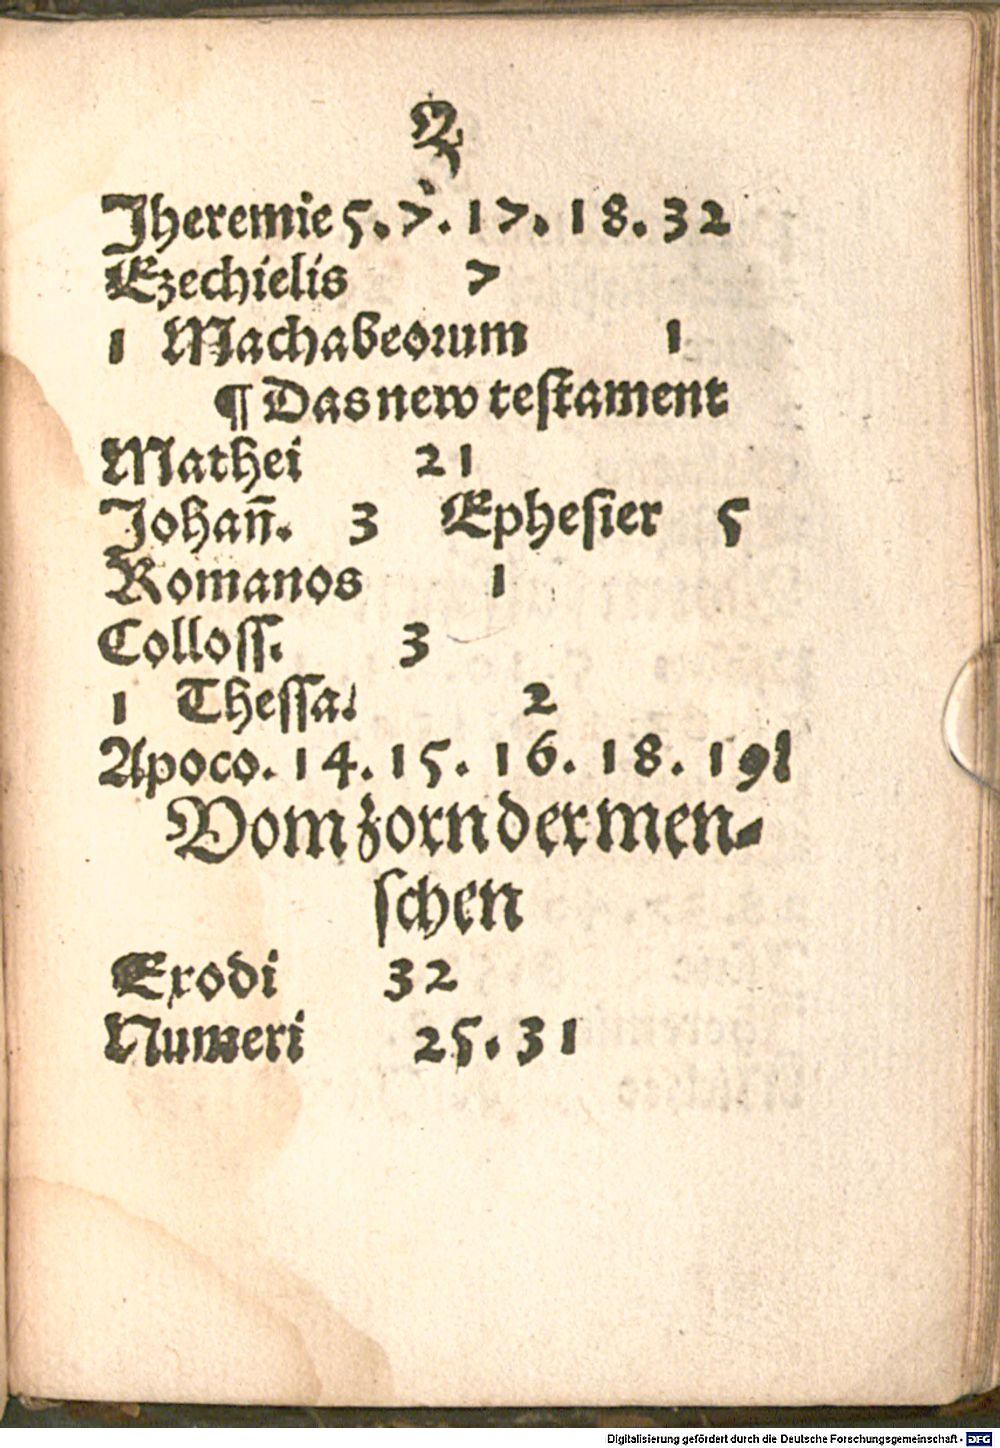 Z
Jheremie 5. 7. 17. 18. 32
Ezechielis 7
1 Machabeorum 1
¶ Das new testament
Mathei 21
Johan̄. 3 Ephesier 5
Romanos 1
Colloss. 3
1 Thessa. 2
Apoco. 14. 15. 16. 18. 19
Vom zorn der men-
schen
Exodi 32
Numeri 25. 31
Digitalisierung gefördert durch die Deutsche Forschungsgemeinschaft - DFG